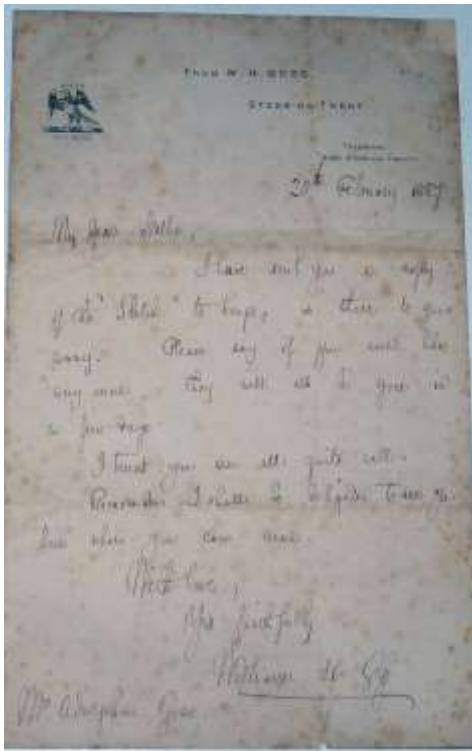 From W. H. GOSS,
STOKE-ON-TRENT
20th February 1887
My dear
I have sent you a copy
of the "Sketch" to keep, & three to give
away. Please say if you would like
any more. They will all be given in
a few days
I trust you are all quite well.
Remember I shall be delighted to see you
here when you can come.
With love,
Yrs faithfully
William H. Goss
Mr Adolphus Goss